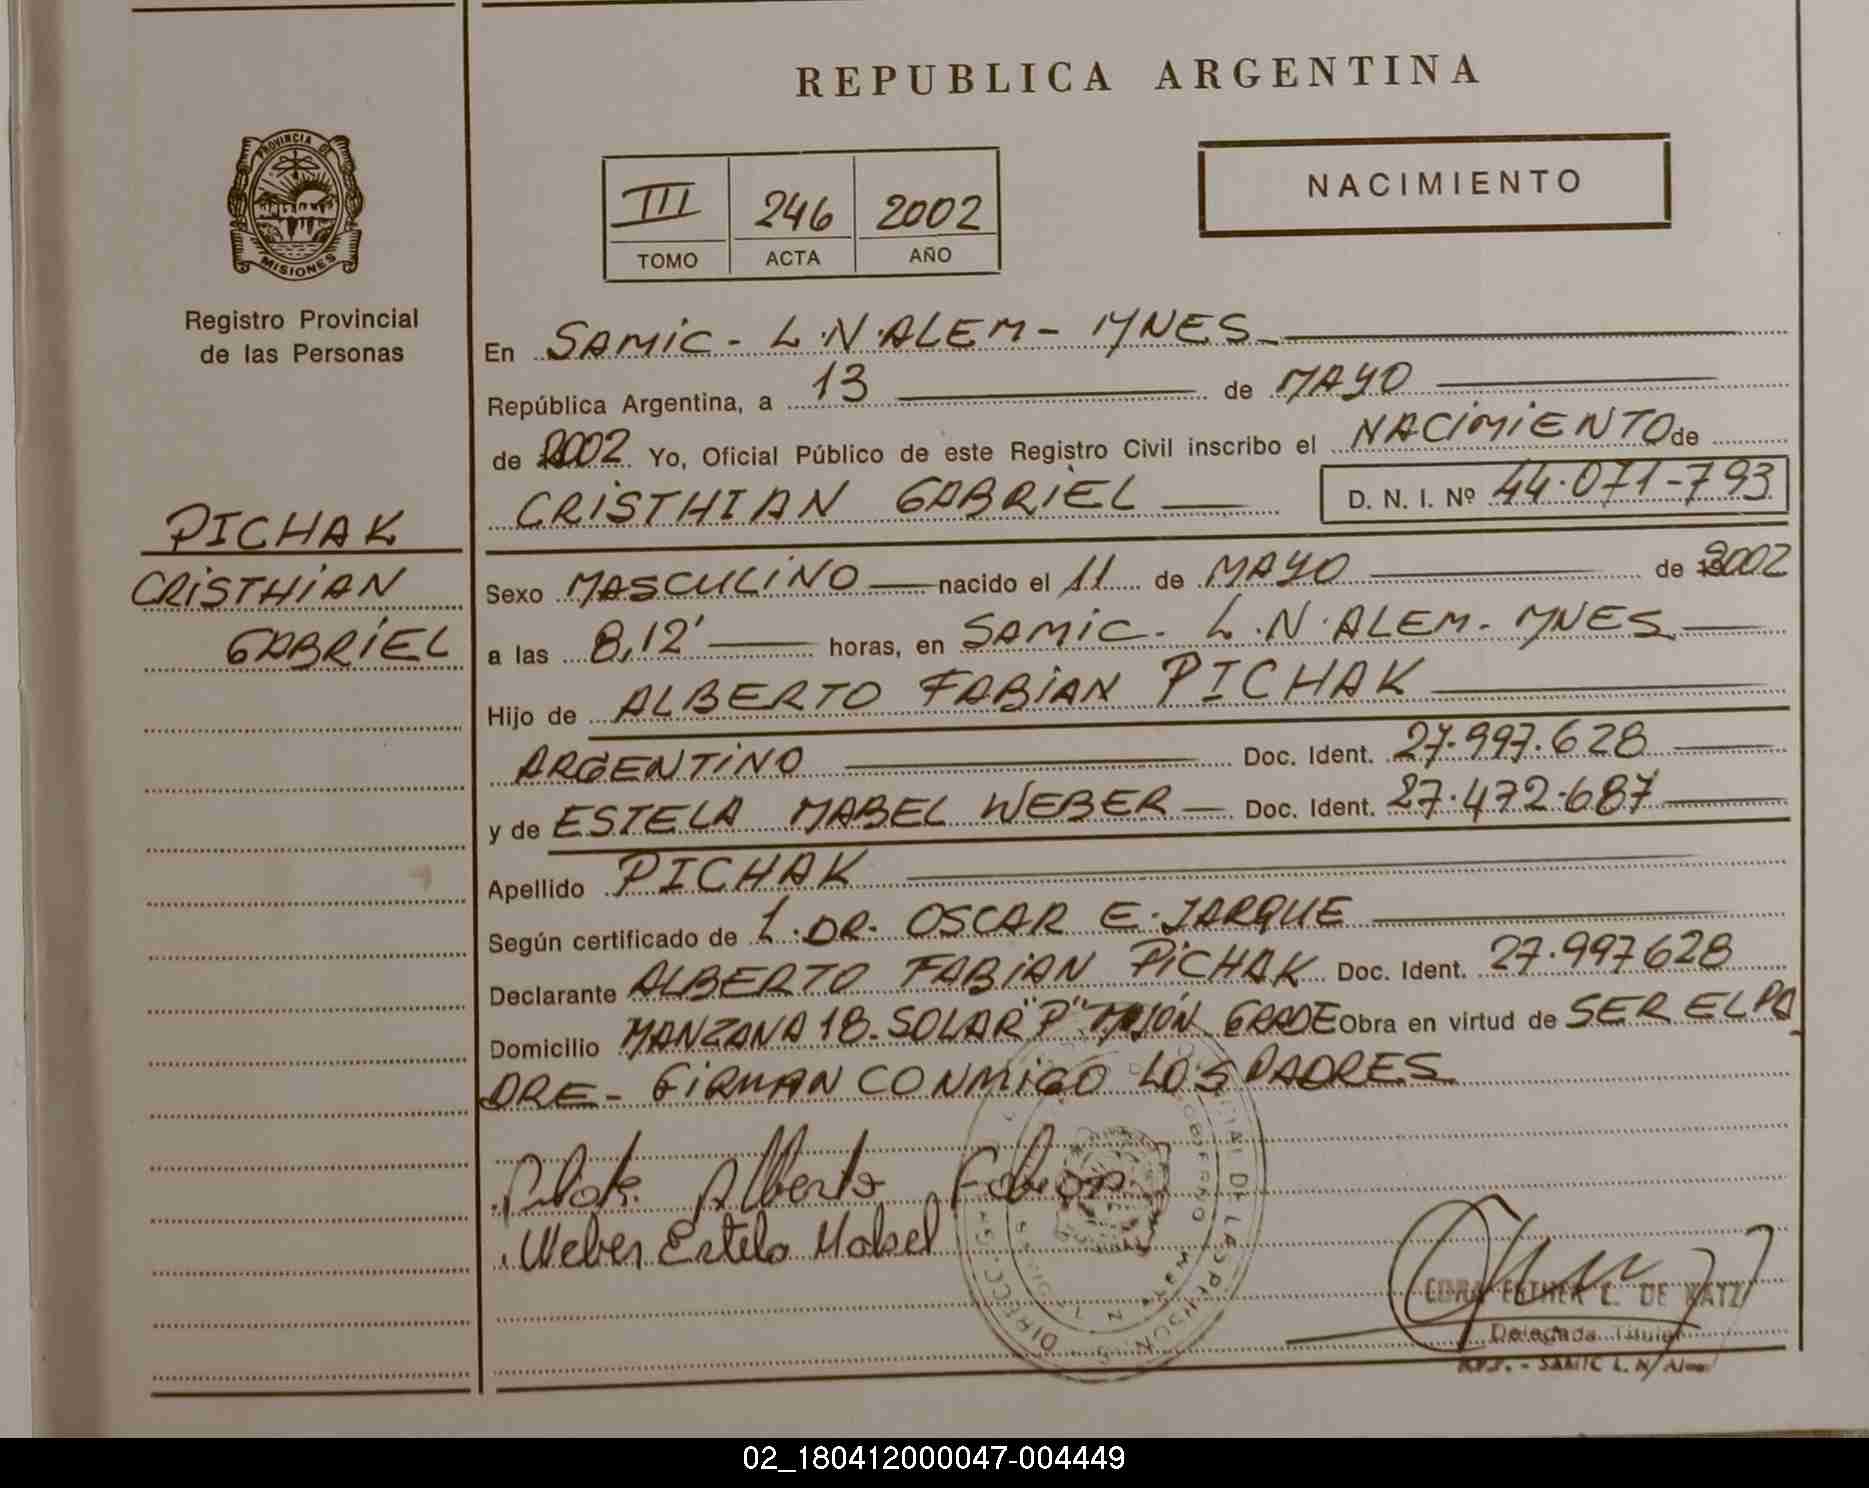 REPUBLICA ARGENTINA
PROVINCIA DE
MISIONES
Registro Provincial
de las Personas
III 246 2002
TOMO ACTA AÑO
NACIMIENTO
PICHAK
CRISTHIAN
GABRIEL
En SAMIC - L.N. ALEM - MNES
República Argentina, a 13 de MAYO
de 2002 Yo, Oficial Público de este Registro Civil inscribo el NACIMIENTO de
CRISTHIAN GABRIEL D. N. I. Nº 44.071-793
Sexo MASCULINO nacido el 11 de MAYO de 2002
a las 8,12' horas, en SAMIC - L.N. ALEM - MNES
Hijo de ALBERTO FABIAN PICHAK
ARGENTINO Doc. Ident. 27.997.628
y de ESTELA MABEL WEBER Doc. Ident. 27.472.687
Apellido PICHAK
Según certificado de 1. DR. OSCAR E. JARQUE
Declarante ALBERTO FABIAN PICHAK Doc. Ident. 27.997628
Domicilio MANZANA 18 - SOLAR "P" GRADE Obra en virtud de SER EL PA
DRE - FIRMAN CONMIGO LOS PADRES
Alberto Fabian
Weber Estela Mabel
ESTHER L. DE KATZ
Delegada Titular
- SAMIC L. N. Alem
02_180412000047-004449